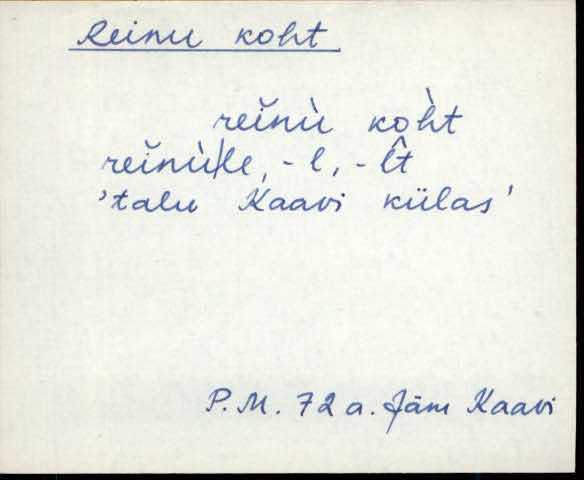 Reinu koht
reĭnù kòht
reĭnù|le, -l, -l̂t
'talu Kaavi külas'
P. M. 72 a. Jäm Kaavi